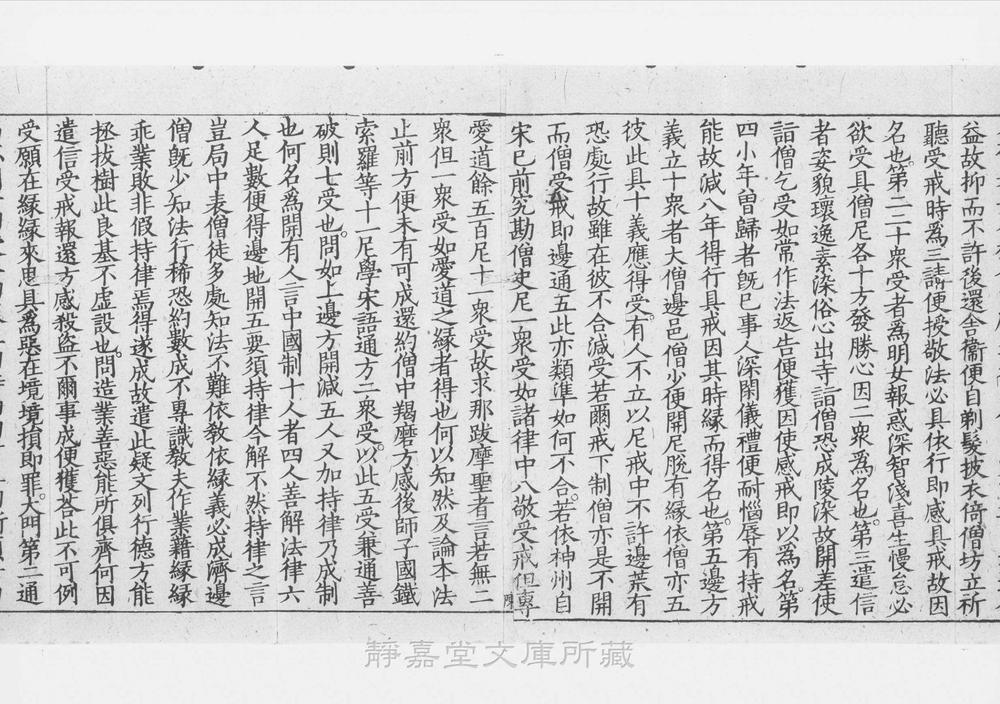 益故抑而不許後還舍衞便自剃髮披衣倚僧坊立祈
聽受戒時爲三請便授敬法必具依行即感具戒故因
名也第二二十衆受者爲明女報惑深智淺喜生慢怠必
欲受具僧尼各十方發勝心因二衆爲名也第三遣信
者姿貌瓌逸素深俗心出寺詣僧恐成陵深故開差使
詣僧乞受如常作法返告便獲因使感戒即以爲名第
四小年曾歸者旣已事人深閑儀禮便耐惱辱有持戒
能故減八年得行具戒因其時緣而得名也第五邊方
義立十衆者大僧邊邑僧少便開尼脫有緣依僧亦五
彼此具十義應得受有人不立以尼戒中不許邊荒有
恐處行故雖在彼不合減受若爾戒下制僧亦是不開
而僧受戒即邊通五此亦類準如何不合若依神州自
宋已前究勘僧史尼一衆受如諸律中八敬受戒但專
愛道餘五百尼十一衆受故求那跋摩聖者言若無二
衆但一衆受如愛道之緣者得也何以知然及論本法
止前方便未有可成還約僧中羯磨方感後師子國鐵
索羅等十一尼學宋語通方二衆受以此五受兼通善
破則七受也問如上邊方開減五人又加持律乃成制
也何名爲開有人言中國制十人者四人善解法律六
人足數便得邊地開五要須持律今解不然持律之言
豈局中表僧徒多處知法不難依敎依緣義必成濟邊
僧旣少知法行稀恐約數成不專識敎夫作業藉緣緣
乖業敗非假持律焉得遂成故遣此疑文列行德方能
拯拔樹此良基不虛設也問造業善惡能所俱齊何因
遣信受戒報還方感殺盜不爾事成便獲荅此不可例
受願在緣緣來思具爲惡在境境損即罪大門第二通
陳
靜嘉堂文庫所藏